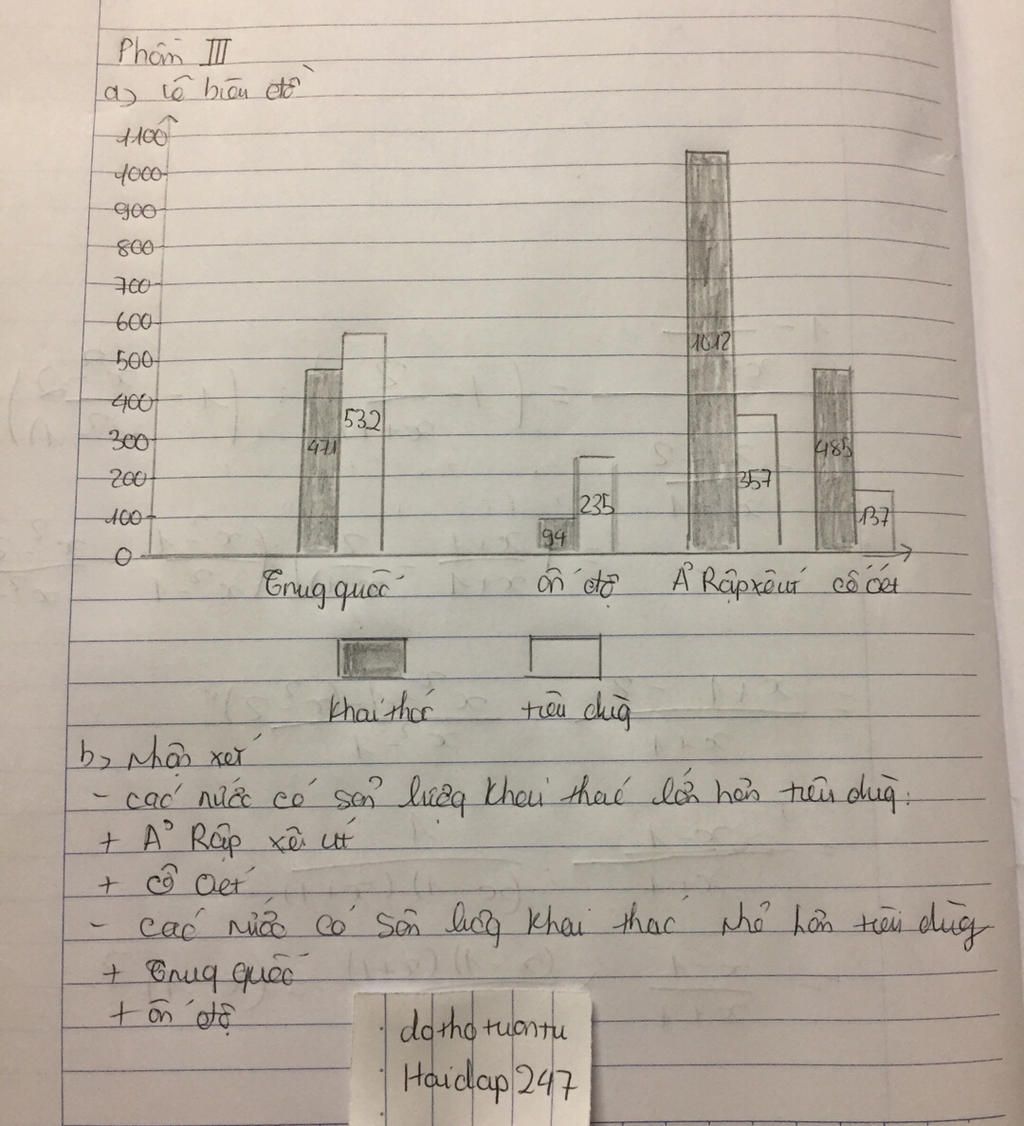 Phần III
a) Vẽ biểu đồ
1100
1000
900
800
700
600
500
400
300
200
100
0
471
532
94
235
1012
357
485
137
Trug quốc
ấn độ
Ả Rập xê út
cô oét
khai thác
tiêu dùg
b) Nhận xét
- các nước có sản lượg khai thác lớn hơn tiêu dùg:
+ Ả Rập xê út
+ cô oet
- các nước có sản lượg khai thác nhỏ hơn tiêu dùg
+ Trug quốc
+ ấn độ
dothotuontu
Hoidap247